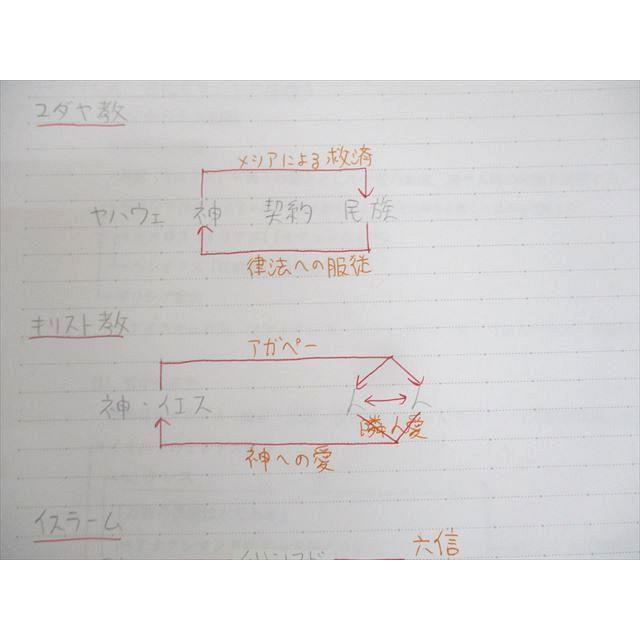 ユダヤ教
メシアによる救済
ヤハウェ 神 契約 民族
律法への服従
キリスト教
アガペー
神・イエス 人 人
隣人愛
神への愛
イスラーム
六信